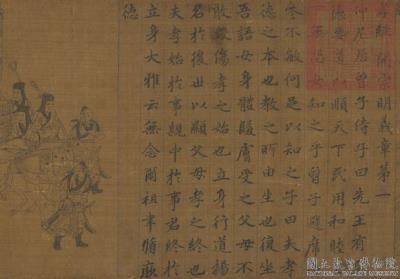 孝經 開宗明義章第一
仲尼居曾子侍子曰先王有
德要道以順天下民用和睦
知之乎曾子避席
參不敏何足以知之子曰夫孝
德之本也教之所由生也復坐
吾語女身體髮膚受之父母不
敢毀傷孝之始也立身行道揚
名於後世以顯父母孝之終也
夫孝始於事親中於事君終於
立身大雅云無念爾祖聿脩厥
德
國立故宮博物院